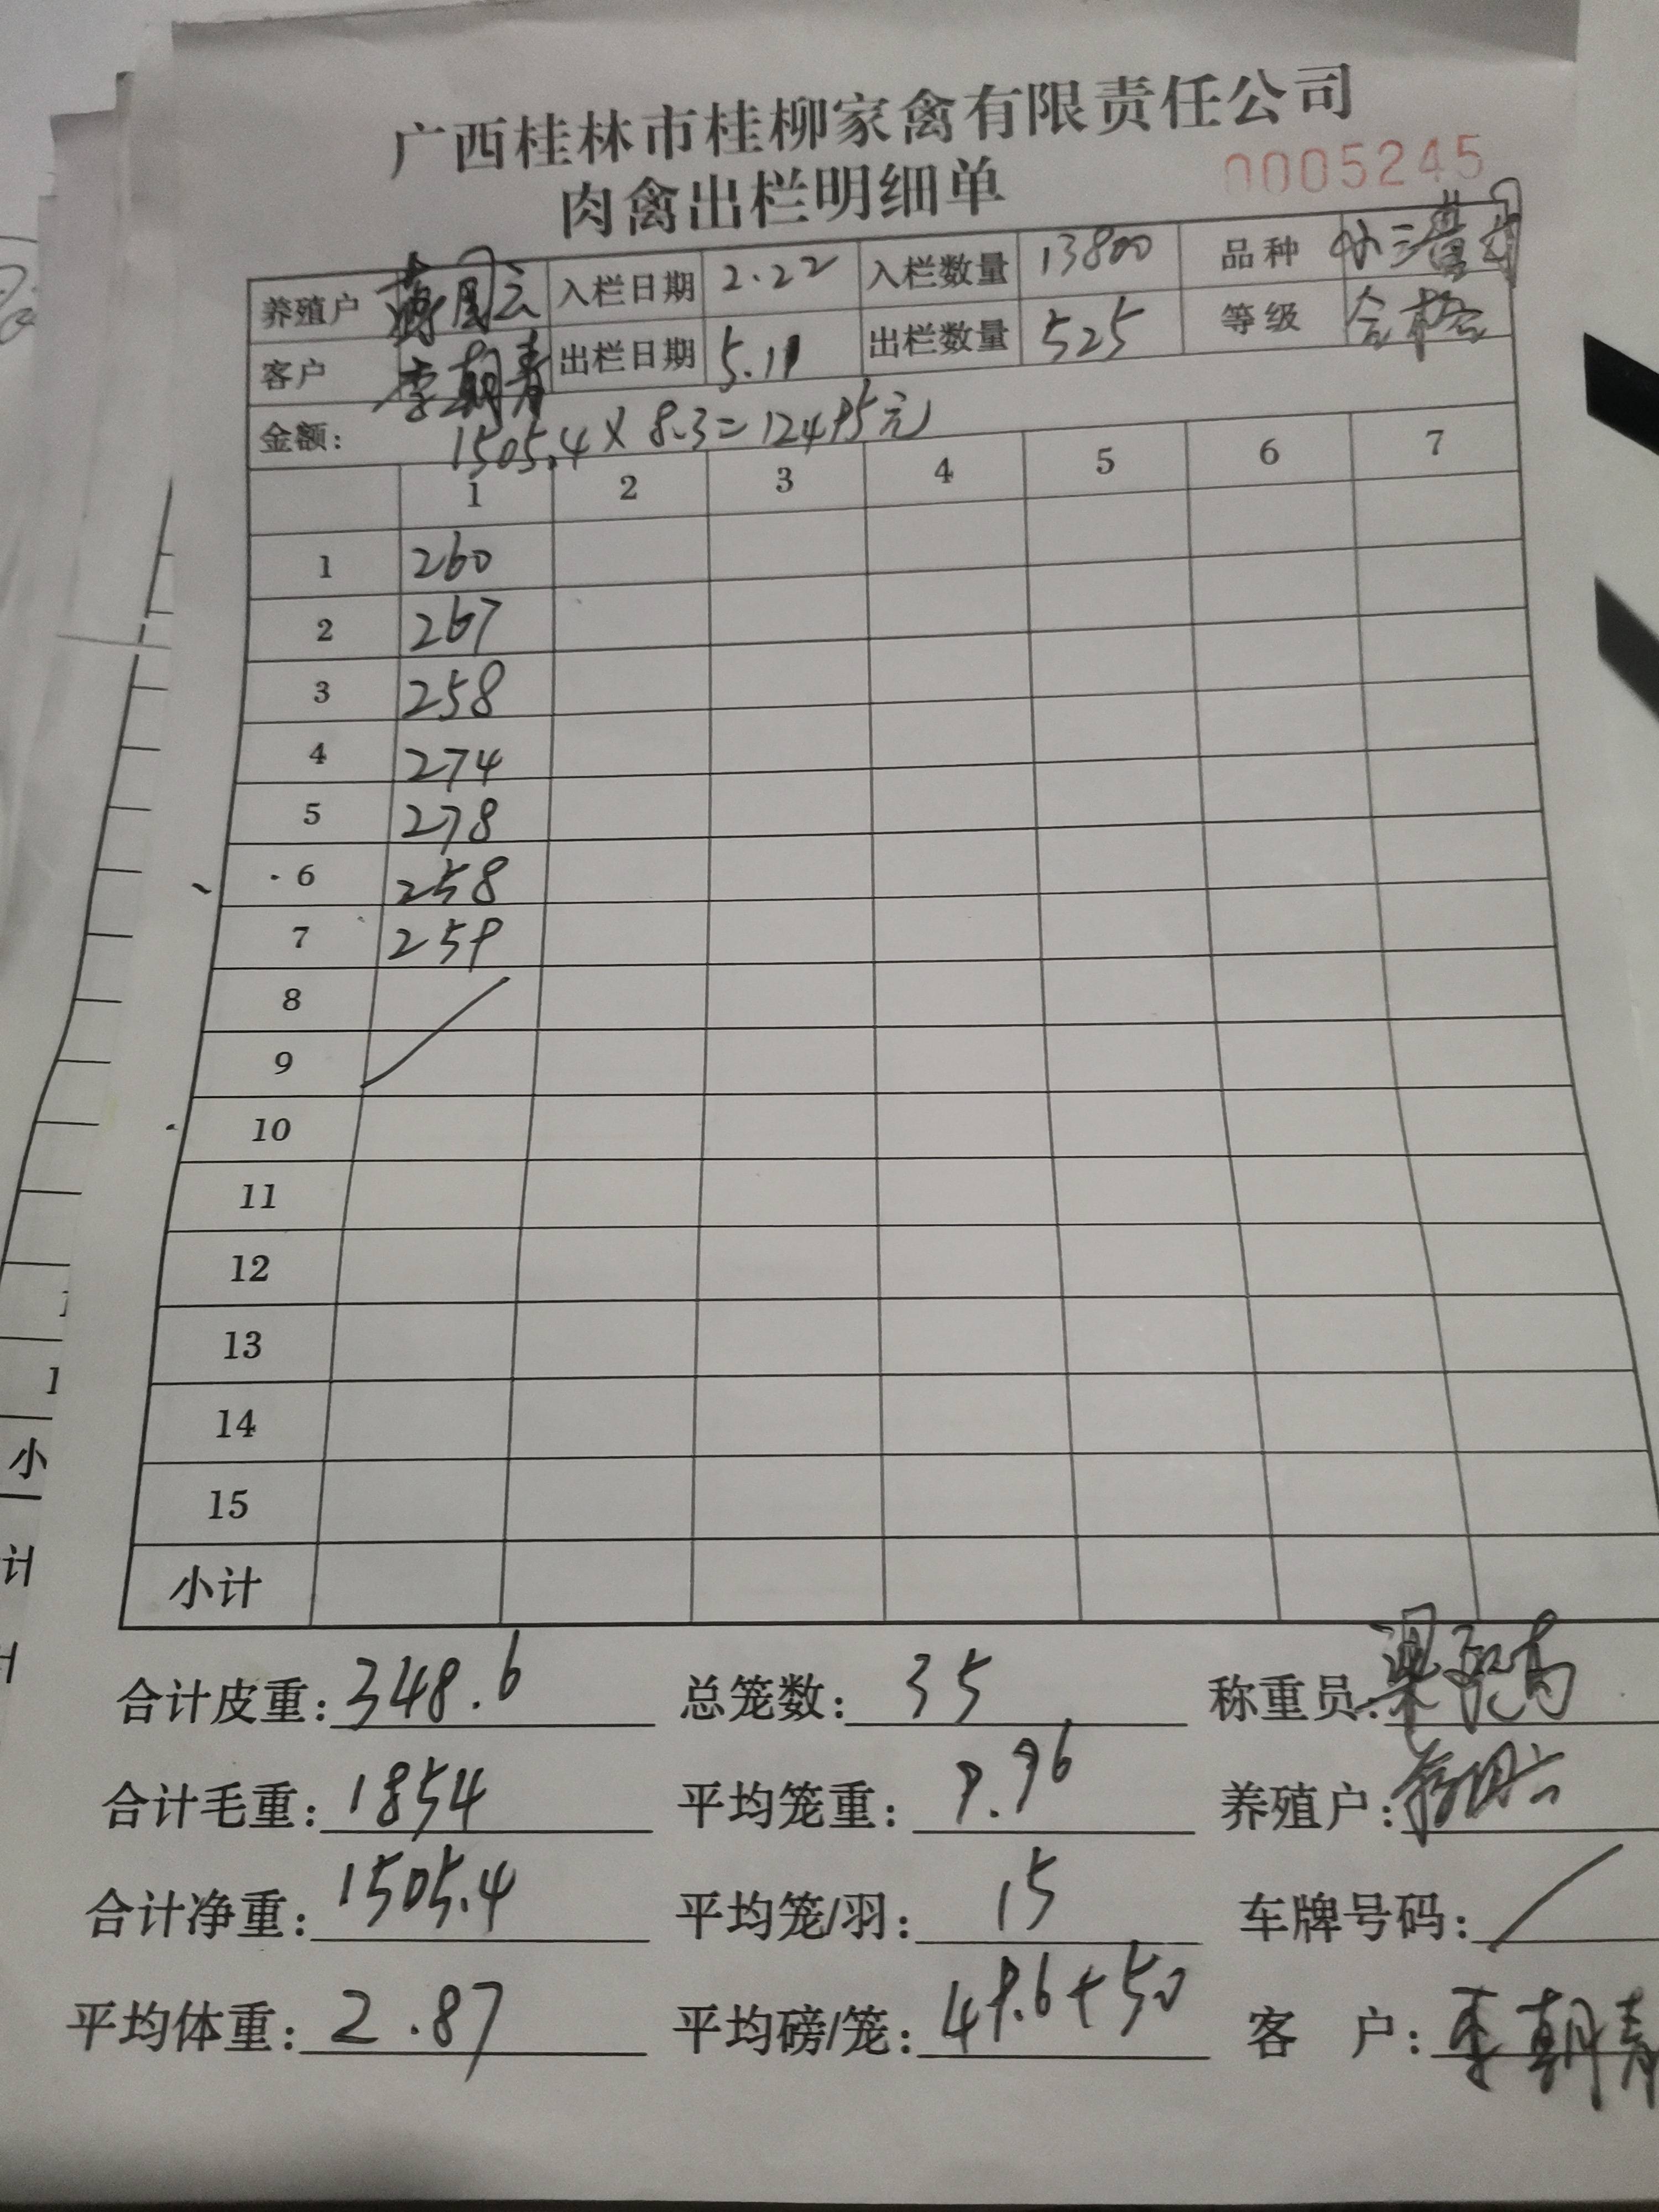 广西桂林市桂柳家禽有限责任公司
肉禽出栏明细单 0005245
养殖户 入栏日期 2.22 入栏数量 13800 品种
客户 李朝青 出栏日期 5.11 出栏数量 525 等级 合格
金额: 1505.4×8.3=12495元
1 2 3 4 5 6 7
1 260
2 267
3 258
4 274
5 278
6 258
7 259
8
9
10
11
12
13
14
15
小计
合计皮重: 348.6 总笼数: 35 称重员:
合计毛重: 1854 平均笼重: 9.96 养殖户:
合计净重: 1505.4 平均笼/羽: 15 车牌号码: /
平均体重: 2.87 平均磅/笼: 49.6+50 客 户: 李朝青
1
小
计